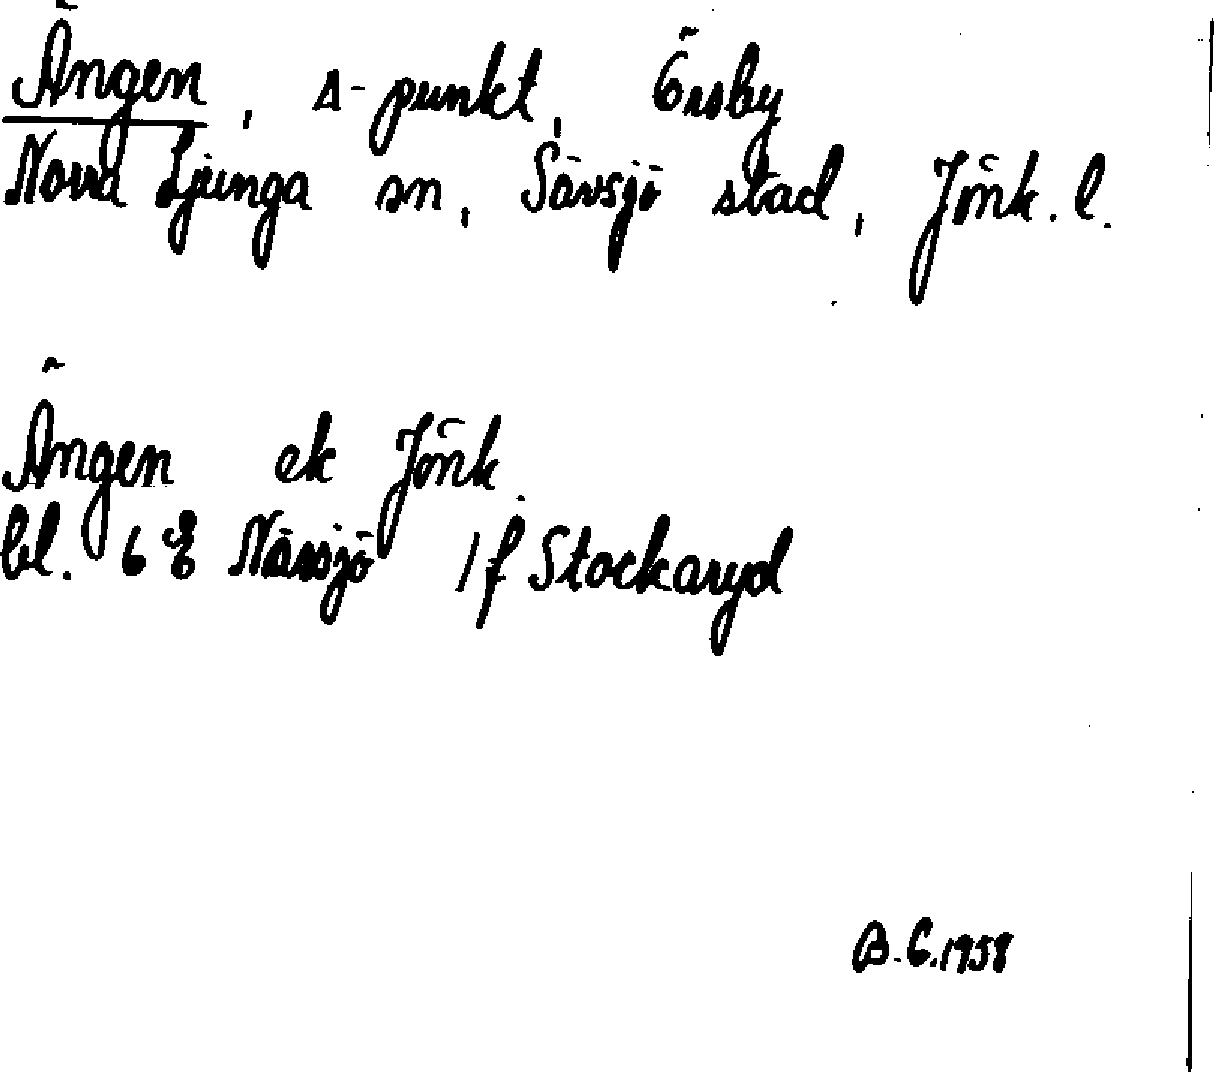 Ängen, Δ-punkt, Örsby
Norra Ljunga sn, Sävsjö stad, Jönk. l.
Ängen ek Jönk.
bl. 6 E Nässjö 1f Stockaryd
B.C. 1958